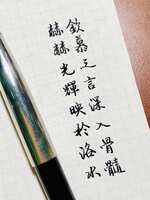 欽慕之言深入骨髓
赫赫光輝映於洛水